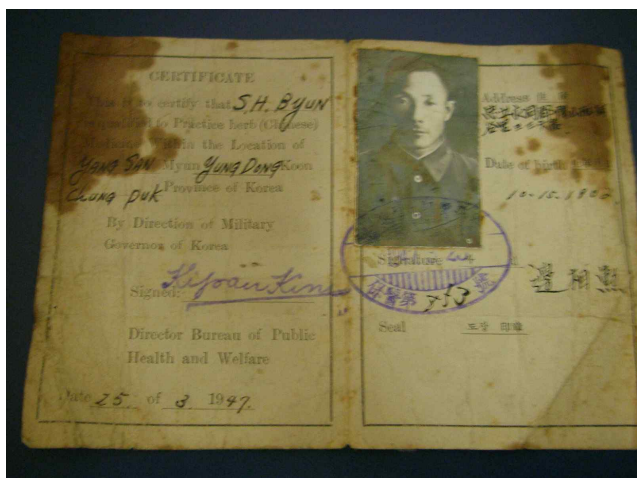 CERTIFICATE
This is to certify that S.H. BYUN
qualified to Practice herb (Chinese)
within the Location of
YANG SAN Myun YUNG DONG Koon
CHUNG PUK Province of Korea
By Direction of Military
Governor of Korea
Signed:
Director Bureau of Public
Health and Welfare
Date 25. of 3. 1947.
Address
Date of birth
10-15.1900
Signature
第 753
邊相熙
Seal 도장 印章